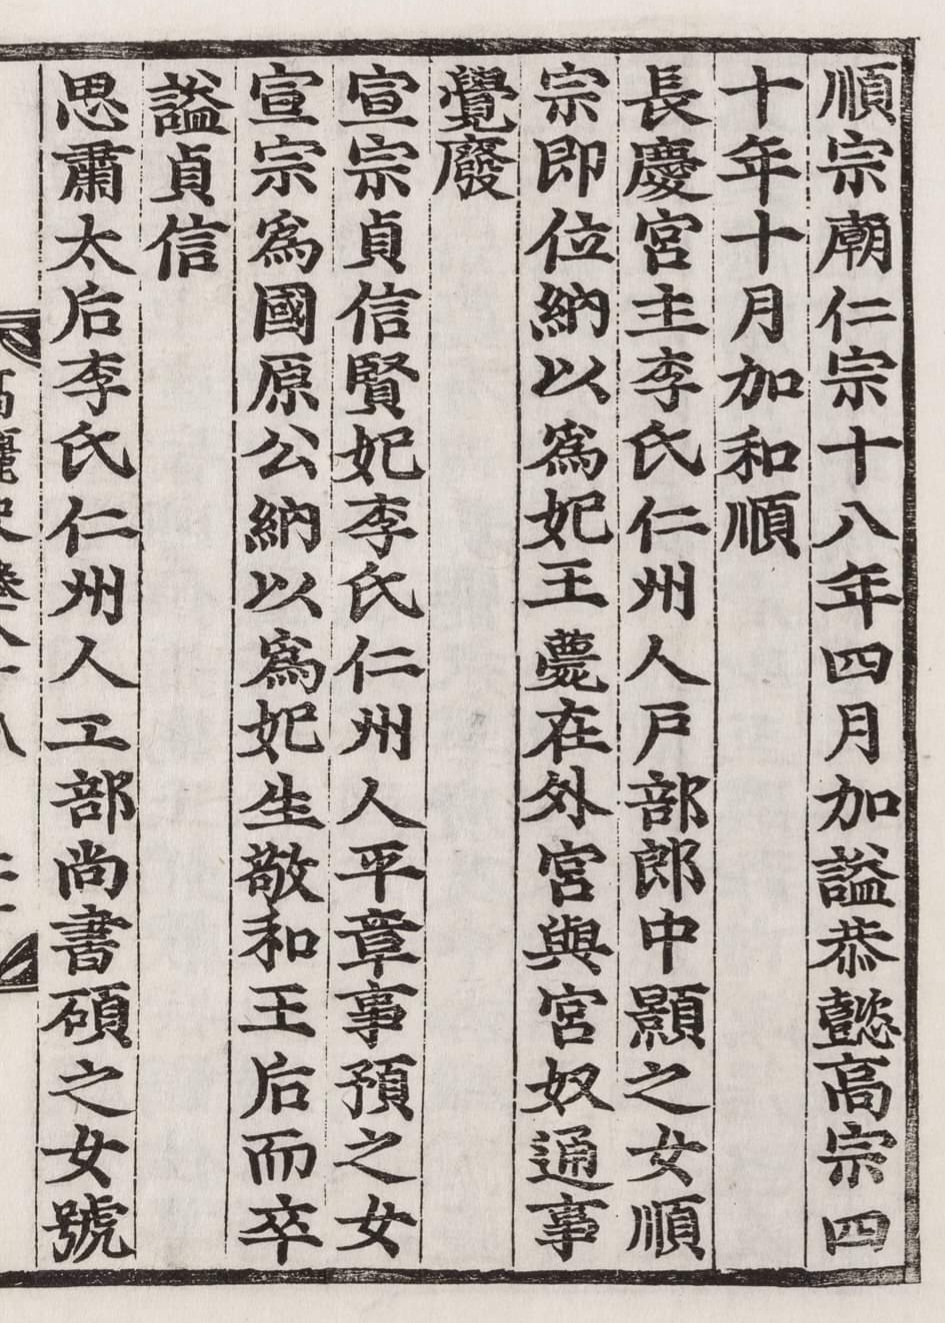 順宗廟仁宗十八年四月加謚恭懿高宗四
十年十月加和順
長慶宮主李氏仁州人戶部郎中顥之女順
宗即位納以爲妃王薨在外宮與宮奴通事
覺廢
宣宗貞信賢妃李氏仁州人平章事預之女
宣宗爲國原公納以爲妃生敬和王后而卒
謚貞信
思肅太后李氏仁州人工部尚書碩之女號
高麗史